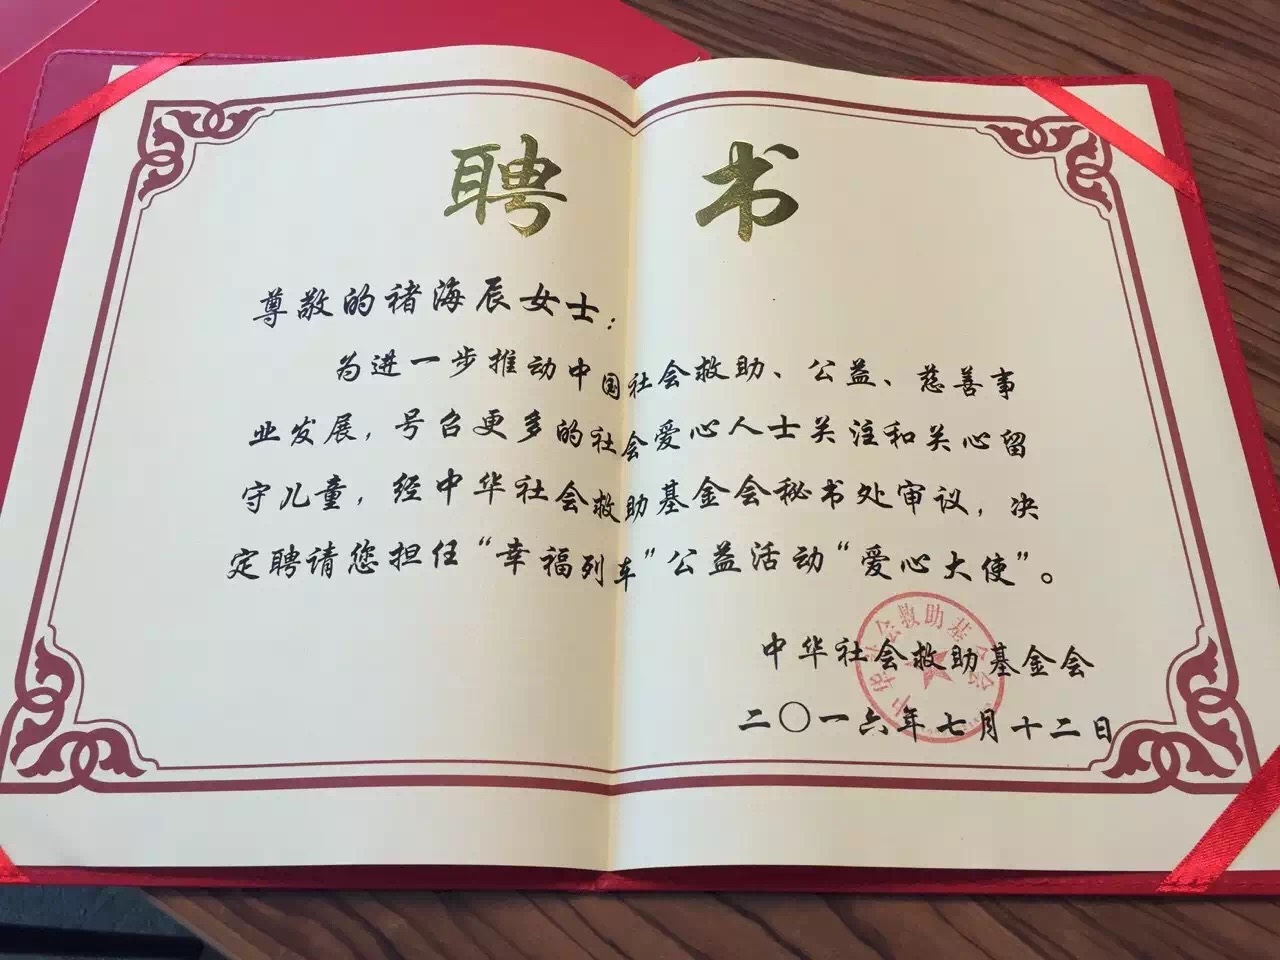 聘书
尊敬的褚海辰女士：
为进一步推动中国社会救助、公益、慈善事
业发展，号召更多的社会爱心人士关注和关心留
守儿童，经中华社会救助基金会秘书处审议，决
定聘请您担任“幸福列车”公益活动“爱心大使”。
中华社会救助基金会
中华社会救助基金会
二〇一六年七月十二日